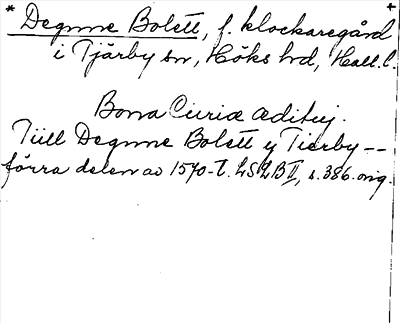 * Degnne Bolett, f. klockaregård +
i Tjärby sn, Höks hd, Hall. l.
Bona Curiæ ædituj.
Tiill Degnne Bolett y Tierby --
förra delen av 1570-t. LSLB II, s. 386. orig.